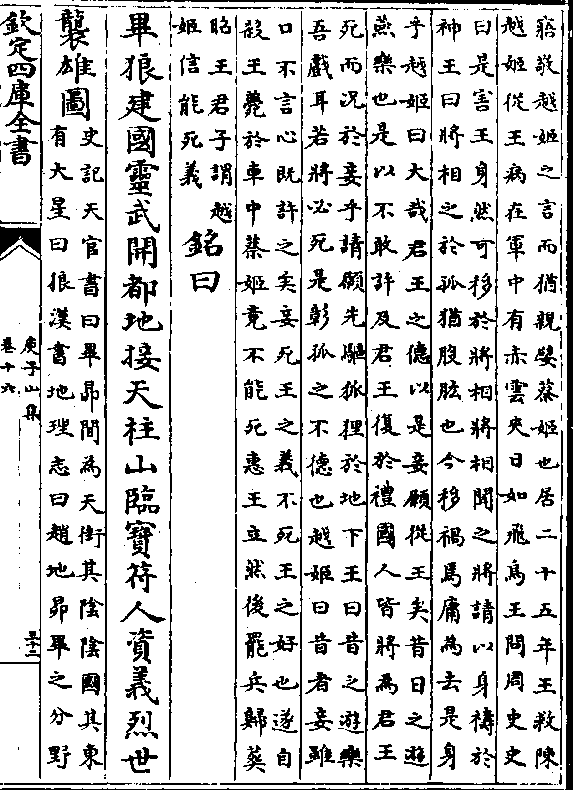 寤敬越姬之言而猶親嬖蔡姬也居二十五年王救陳
越姬從王病在軍中有赤雲夾日如飛鳥王問周史史
曰是害王身然可移於將相將相聞之將請以身禱於
神王曰將相之於孤猶股肱也今移禍焉庸為去是身
乎越姬曰大哉君王之德以是妾願從王矣昔日之遊
燕樂也是以不敢許及君王復於禮國人皆將為君王
死而況於妾乎請願先驅狐狸於地下王曰昔之遊樂
吾戲耳若將必死是彰孤之不德也越姬曰昔者妾雖
口不言心既許之矣妾死王之義不死王之好也遂自
殺王薨於車中蔡姬竟不能死惠王立然後罷兵歸葬
昭王君子謂越
姬信能死義
銘曰
畢狼建國靈武開都地接天柱山臨寶符人資義烈世
襲雄圖
史記天官書曰畢昴間為天街其陰陰國其東
有大星曰狼漢書地理志曰趙地昴畢之分野
欽定四庫全書
庾子山集
卷十六